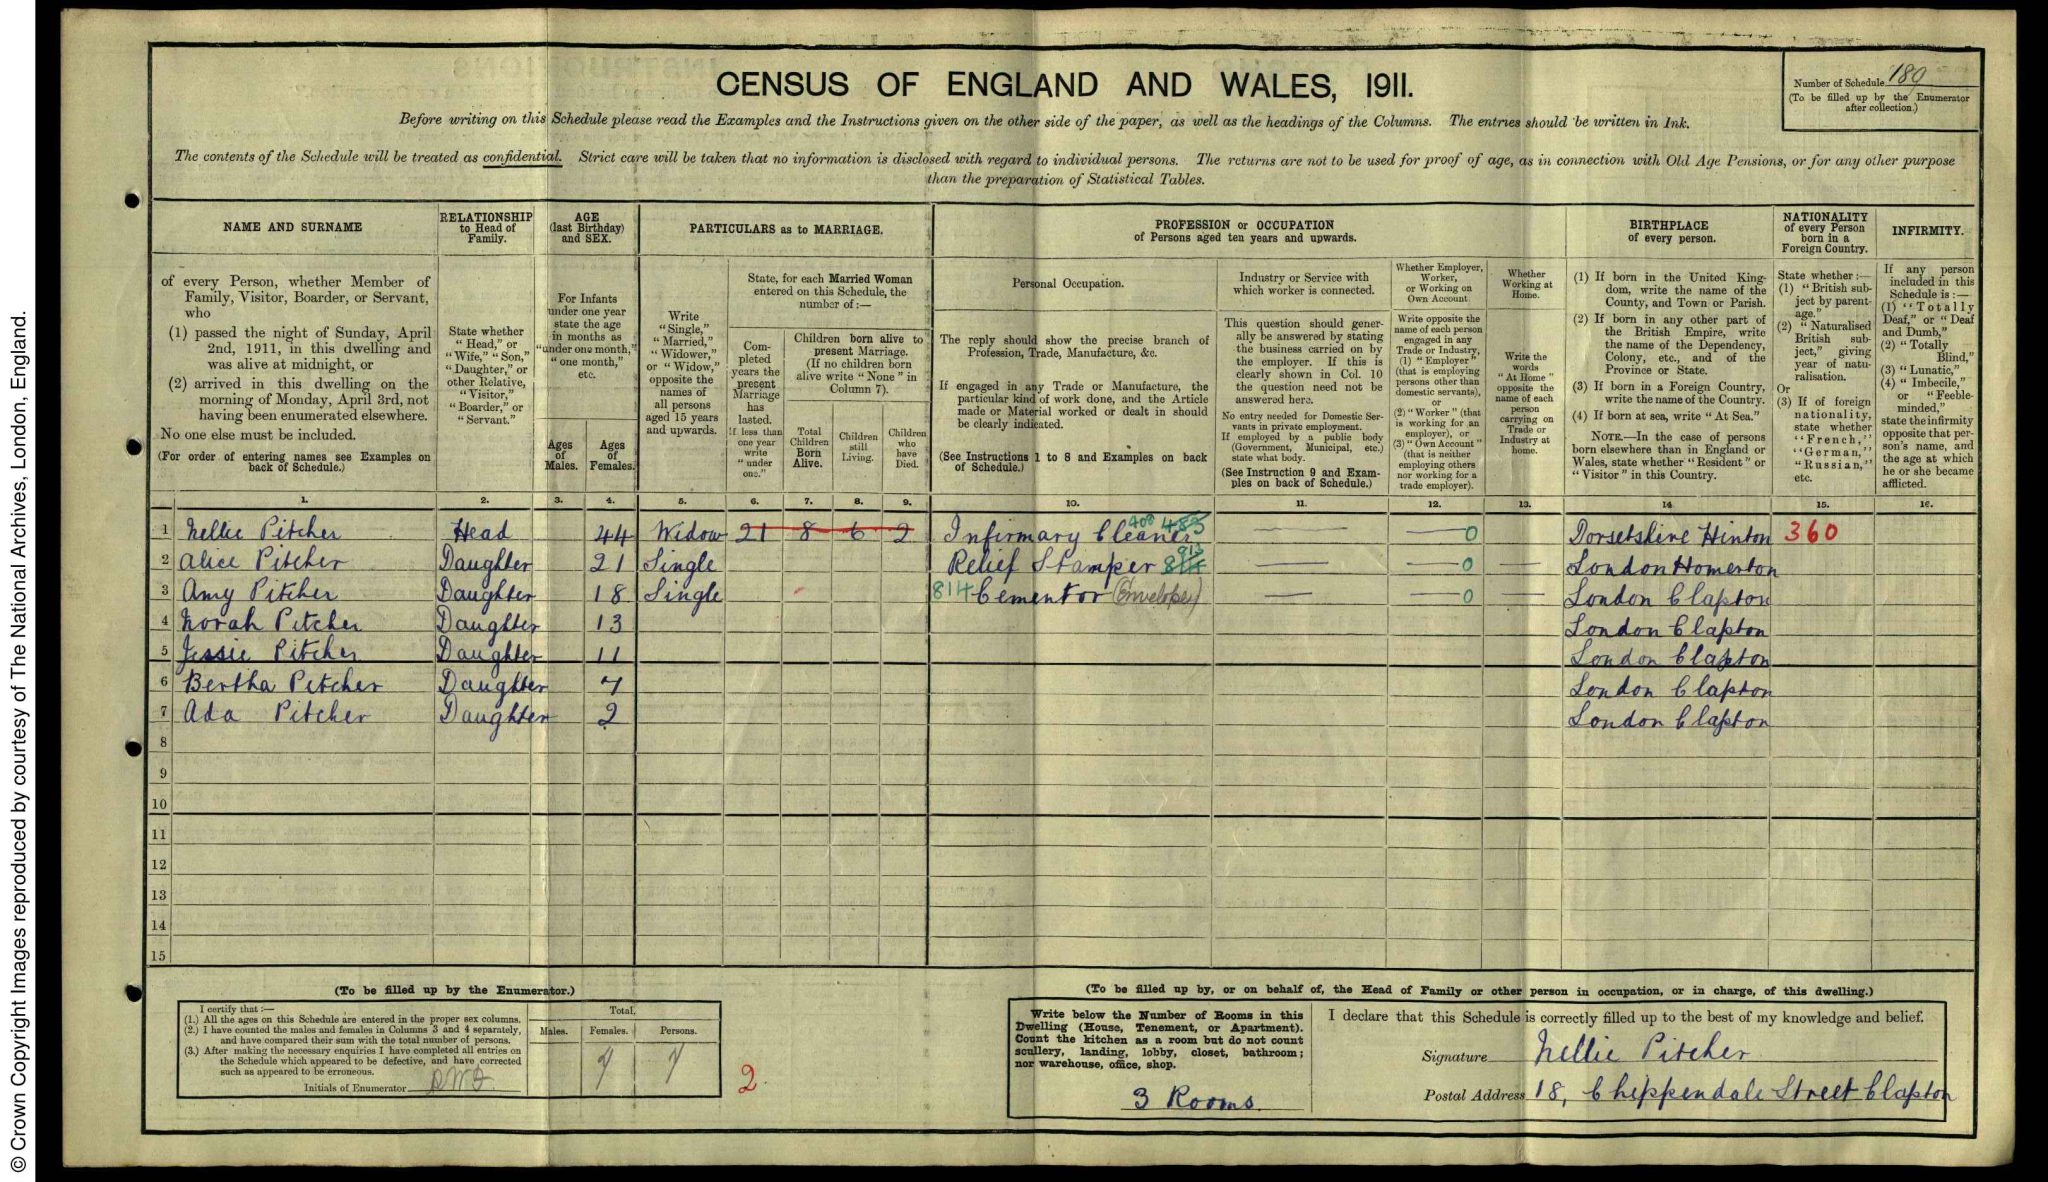 CENSUS OF ENGLAND AND WALES, 1911.
Number of Schedule 189
(To be filled up by the Enumerator
after collection.)
Before writing on this Schedule please read the Examples and the Instructions given on the other side of the paper, as well as the headings of the Columns. The entries should be written in Ink.
The contents of the Schedule will be treated as confidential. Strict care will be taken that no information is disclosed with regard to individual persons. The returns are not to be used for proof of age, as in connection with Old Age Pensions, or for any other purpose
than the preparation of Statistical Tables.
NAME AND SURNAME
of every Person, whether Member of
Family, Visitor, Boarder, or Servant,
who
(1) passed the night of Sunday, April
2nd, 1911, in this dwelling and
was alive at midnight, or
(2) arrived in this dwelling on the
morning of Monday, April 3rd, not
having been enumerated elsewhere.
No one else must be included.
(For order of entering names see Examples on
back of Schedule.)
RELATIONSHIP
to Head of
Family.
State whether
"Head," or
"Wife," "Son,"
"Daughter," or
other Relative,
"Visitor,"
"Boarder," or
"Servant."
AGE
(last Birthday)
and SEX.
For Infants
under one year
state the age
in months as
"under one month,"
"one month,"
etc.
Ages
of
Males.
Ages
of
Females.
PARTICULARS as to MARRIAGE.
Write
"Single,"
"Married,"
"Widower,"
or "Widow,"
opposite the
names of
all persons
aged 15 years
and upwards.
State, for each Married Woman
entered on this Schedule, the
number of:—
Com-
pleted
years the
present
Marriage
has
lasted.
If less than
one year
write
"under
one."
Children born alive to
present Marriage.
(If no children born
alive write "None" in
Column 7).
Total
Children
Born
Alive.
Children
still
Living.
Children
who
have
Died.
PROFESSION or OCCUPATION
of Persons aged ten years and upwards.
Personal Occupation.
The reply should show the precise branch of
Profession, Trade, Manufacture, &c.
If engaged in any Trade or Manufacture, the
particular kind of work done, and the Article
made or Material worked or dealt in should
be clearly indicated.
(See Instructions 1 to 8 and Examples on back
of Schedule.)
Industry or Service with
which worker is connected.
This question should gener-
ally be answered by stating
the business carried on by
the employer. If this is
clearly shown in Col. 10
the question need not be
answered here.
No entry needed for Domestic Ser-
vants in private employment.
If employed by a public body
(Government, Municipal, etc.)
state what body.
(See Instruction 9 and Exam-
ples on back of Schedule.)
Whether Employer,
Worker,
or Working on
Own Account.
Write opposite the
name of each person
engaged in any
Trade or Industry,
(1) "Employer"
(that is employing
persons other than
domestic servants),
or
(2) "Worker" (that
is working for an
employer), or
(3) "Own Account"
(that is neither
employing others
nor working for a
trade employer).
Whether
Working at
Home.
Write the
words
"At Home"
opposite the
name of each
person
carrying on
Trade or
Industry at
home.
BIRTHPLACE
of every person.
(1) If born in the United King-
dom, write the name of the
County, and Town or Parish.
(2) If born in any other part of
the British Empire, write
the name of the Dependency,
Colony, etc., and of the
Province or State.
(3) If born in a Foreign Country,
write the name of the Country.
(4) If born at sea, write "At Sea."
NOTE.—In the case of persons
born elsewhere than in England or
Wales, state whether "Resident" or
"Visitor" in this Country.
NATIONALITY
of every Person
born in a
Foreign Country.
State whether:—
(1) "British sub-
ject by parent-
age."
(2) "Naturalised
British sub-
ject," giving
year of natu-
ralisation.
Or
(3) If of foreign
nationality,
state whether
"French,"
"German,"
"Russian,"
etc.
INFIRMITY.
If any person
included in this
Schedule is:—
(1) "Totally
Deaf," or "Deaf
and Dumb,"
(2) "Totally
Blind,"
(3) "Lunatic,"
(4) "Imbecile,"
or "Feeble-
minded,"
state the infirmity
opposite that per-
son's name, and
the age at which
he or she became
afflicted.
1. 2. 3. 4. 5. 6. 7. 8. 9. 10. 11. 12. 13. 14. 15. 16.
1 Nellie Pitcher Head 44 Widow 21 8 6 2 Infirmary Cleaner 400 483 — — 0 Dorsetshire Hinton 360
2 Alice Pitcher Daughter 21 Single Relief Stamper 913 — — 0 — London Homerton
3 Amy Pitcher Daughter 18 Single 814 Cementor (Envelopes) — — 0 — London Clapton
4 Norah Pitcher Daughter 13 London Clapton
5 Jessie Pitcher Daughter 11 London Clapton
6 Bertha Pitcher Daughter 7 London Clapton
7 Ada Pitcher Daughter 2 London Clapton
8
9
10
11
12
13
14
15
(To be filled up by the Enumerator.)
I certify that:—
(1.) All the ages on this Schedule are entered in the proper sex columns.
(2.) I have counted the males and females in Columns 3 and 4 separately,
and have compared their sum with the total number of persons.
(3.) After making the necessary enquiries I have completed all entries on
the Schedule which appeared to be defective, and have corrected
such as appeared to be erroneous.
Initials of Enumerator
Total.
Males. Females. Persons.
7 7
2
(To be filled up by, or on behalf of, the Head of Family or other person in occupation, or in charge, of this dwelling.)
Write below the Number of Rooms in this
Dwelling (House, Tenement, or Apartment).
Count the kitchen as a room but do not count
scullery, landing, lobby, closet, bathroom;
nor warehouse, office, shop.
3 Rooms.
I declare that this Schedule is correctly filled up to the best of my knowledge and belief.
Signature Nellie Pitcher
Postal Address 18, Chippendale Street Clapton
© Crown Copyright Images reproduced by courtesy of The National Archives, London, England.